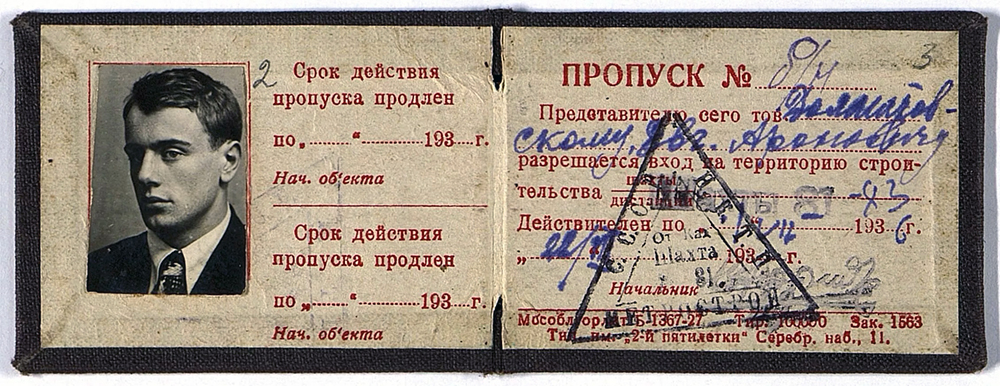 2
Срок действия
пропуска продлен
по „ “ 193 г.
Нач. об'екта
Срок действия
пропуска продлен
по „ “ 193 г.
Нач. об'екта
3
ПРОПУСК № б/н
Представителю сего тов. Долматов-
скому, Евг. Ароновичу
разрешается вход на территорию строи-
тельства шахты 81 - 83
дистанции
Действителен по 193 6 г.
„ 22/ 193 г.
От Ках
Шахта
81
МЕТРОСТРОЙ
Начальник
Мособлгорлит Б-1367-27 Тир. 100000 Зак. 1563
Тип. им. „2-й пятилетки“ Серебр. наб., 11.